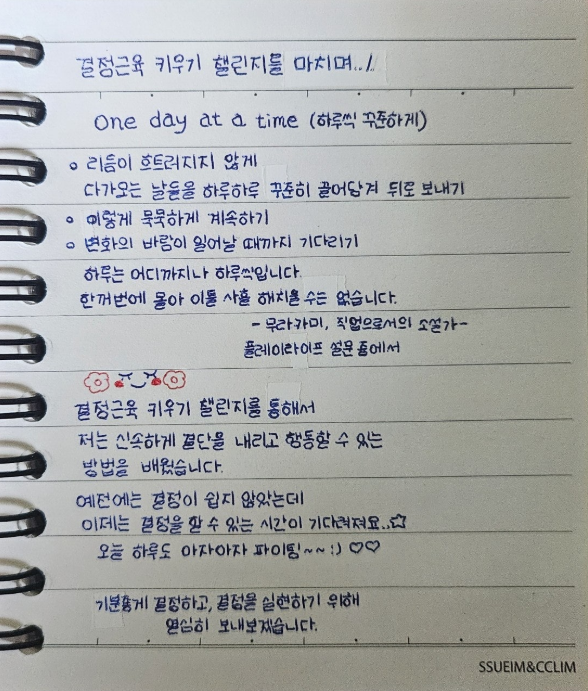 결정근육 키우기 챌린지를 마치며../
One day at a time (하루씩 꾸준하게)
리듬이 흐트러지지 않게
다가오는 날들을 하루하루 꾸준히 끌어당겨 뒤로 보내기
이렇게 묵묵하게 계속하기
변화의 바람이 일어날 때까지 기다리기
하루는 어디까지나 하루씩입니다.
한꺼번에 몰아 이틀 사흘 해치울 수는 없습니다.
- 무라카미, 직업으로서의 소설가-
플레이라이프 설문 중에서
결정근육 키우기 챌린지를 통해서
저는 신속하게 결단을 내리고 행동할 수 있는
방법을 배웠습니다.
예전에는 결정이 쉽지 않았는데
이제는 결정을 할 수 있는 시간이 기다려져요..☆
오늘 하루도 아자아자 파이팅~~:) ♡♡
기분좋게 결정하고, 결정을 실현하기 위해
열심히 보내보겠습니다.
SSUEIM&CCLIM